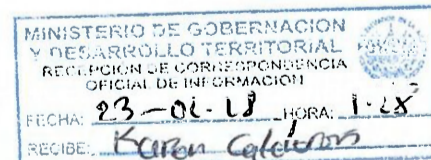 MINISTERIO DE GOBERNACION
Y DESARROLLO TERRITORIAL
RECEPCION DE CORRESPONDENCIA
OFICIAL DE INFORMACION
FECHA: 23-01-18 HORA: 1-28
RECIBE: Karen